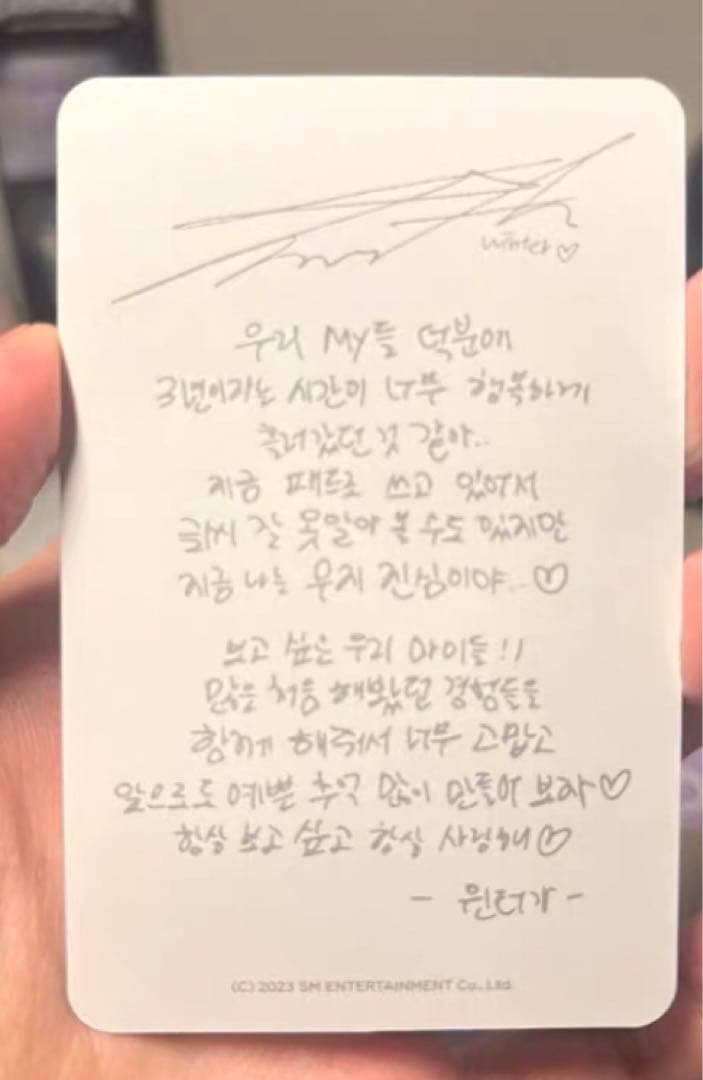 Winter♡
우리 MY들 덕분에
3년이라는 시간이 너무 행복하게
흘러갔던 것 같아..
지금 패드로 쓰고 있어서
글씨 잘 못알아 볼 수도 있지만
지금 나는 무지 진심이야..♡
보고 싶은 우리 마이들!!
많은 처음 해봤던 경험들을
함께 해줘서 너무 고맙고
앞으로도 예쁜 추억 많이 만들어 보자♡
항상 보고 싶고 항상 사랑해♡
- 윈터가 -
(C) 2023 SM ENTERTAINMENT Co., Ltd.